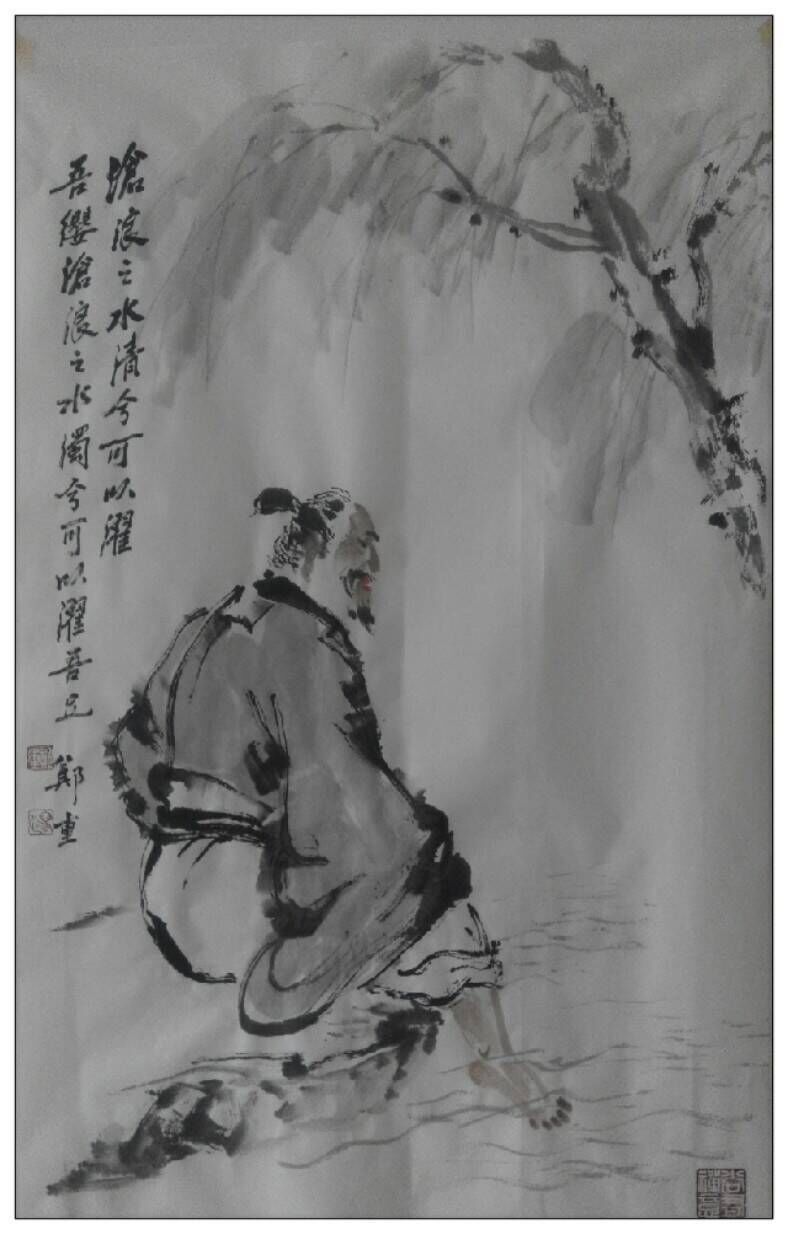 滄浪之水清兮可以濯
吾纓滄浪之水濁兮可以濯吾足
鄭重